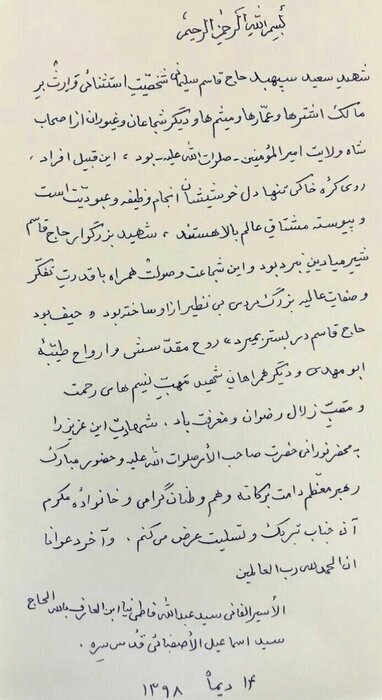 بسم الله الرحمن الرحیم
شهید سعید سپهبد حاج قاسم سلیمانی شخصیّتِ استثنائی و ارث بر
مالک اشترها و عمّارها و میثم ها و دیگر شجاعان و غیوران از اصحاب
شاه ولایت امیر المؤمنین - صلوات الله علیه - بود، این قبیل افراد،
روی کره خاکی تنها دل خوششان انجام وظیفه و عبودیّت است
و پیوسته مشتاق عالم بالا هستند، شهید بزرگوار حاج قاسم
شیر میادین نبرد بود و این شجاعت و صولت همراه با قدرتِ تفکّر
و صفات عالیه بزرگ مردی بی نظیر از او ساخته بود و حیف بود
حاج قاسم در بستر بمیرد، روح مقدّسش و ارواح طیّبهٔ
ابو مهدی و دیگر همراهانِ شهید مَهبِّ نسیم های رحمت
و مَصَبِّ زلال رضوان و مغفرت باد. شهادت این عزیز را
به محضر نورانی حضرت صاحب الأمر صلوات الله علیه و حضور مبارک
رهبر معظّم دامت برکاته و هم وطنان گرامی و خانوادهٔ مکرم
آن جناب تبریک و تسلیت عرض می کنم. و آخر دعوانا
ان الحمد لله رب العالمین
الأسیر الفانی سید عبدالله فاطمی نیا ابن العارف بالله الحاج
سید اسماعیل الأصفیائی قُدّس سِرّه.
۱۴ دیماه ۱۳۹۸